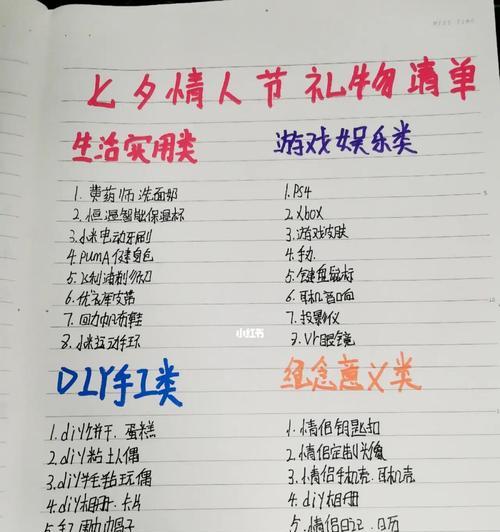 七夕情人节礼物清单
生活实用类
1.费药师洗面奶
2.恒温智能保温杯
3.小米电动牙刷
4.PUMA健身包
5.飞利浦剃须刀
6.优衣库皮带
7.回力帆布鞋
8.小米运动手环
游戏娱乐类
1.PS4
2.Xbox
3.游戏皮肤
4.手办
5.键盘鼠标
6.耳机音响
7.投影仪
8.Vr眼镜
小红书
DIY手工类
1.diy饼干、蛋糕
2.diy粘土人偶
3.diy羊毛毡玩偶
4.diy相册、卡片
5.手
帽子
纪念意义类
1.情侣钥匙扣
2.情侣定制头像
3.情侣手机壳、耳机壳
4.diy相册
5.情侣日记、日历